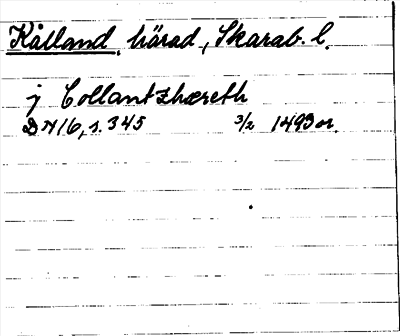 Kålland, härad, Skarab. l.
j Collantzhæreth
DN 16, s. 345 3/2 1493 or.